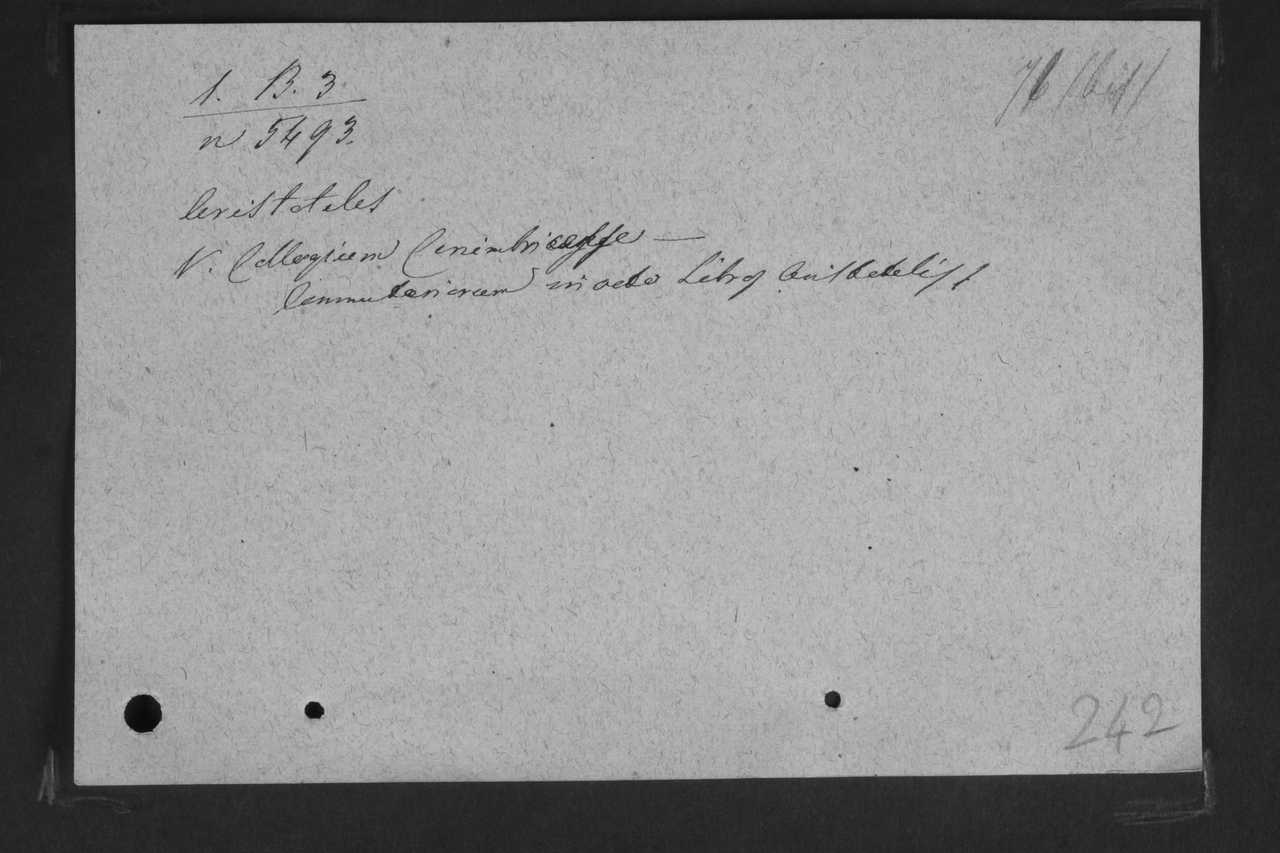 1. B. 3
n 5493.
Aristoteles
V. Collegium Conimbricense —
Commentariorum in octo Libros Aristotelis
242